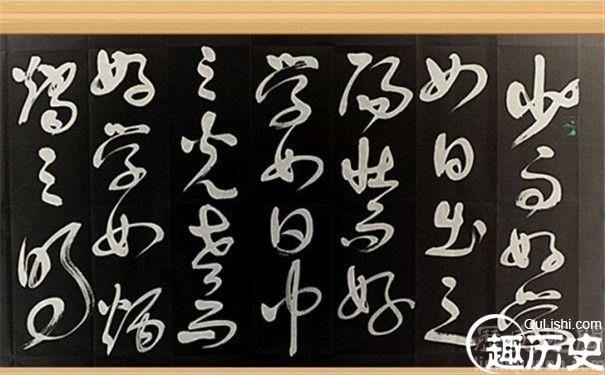 少而好学
如日出之
陽壮而好
学如日中
之光老而
好学如炳
燭之明
QuLishi.com
趣历史